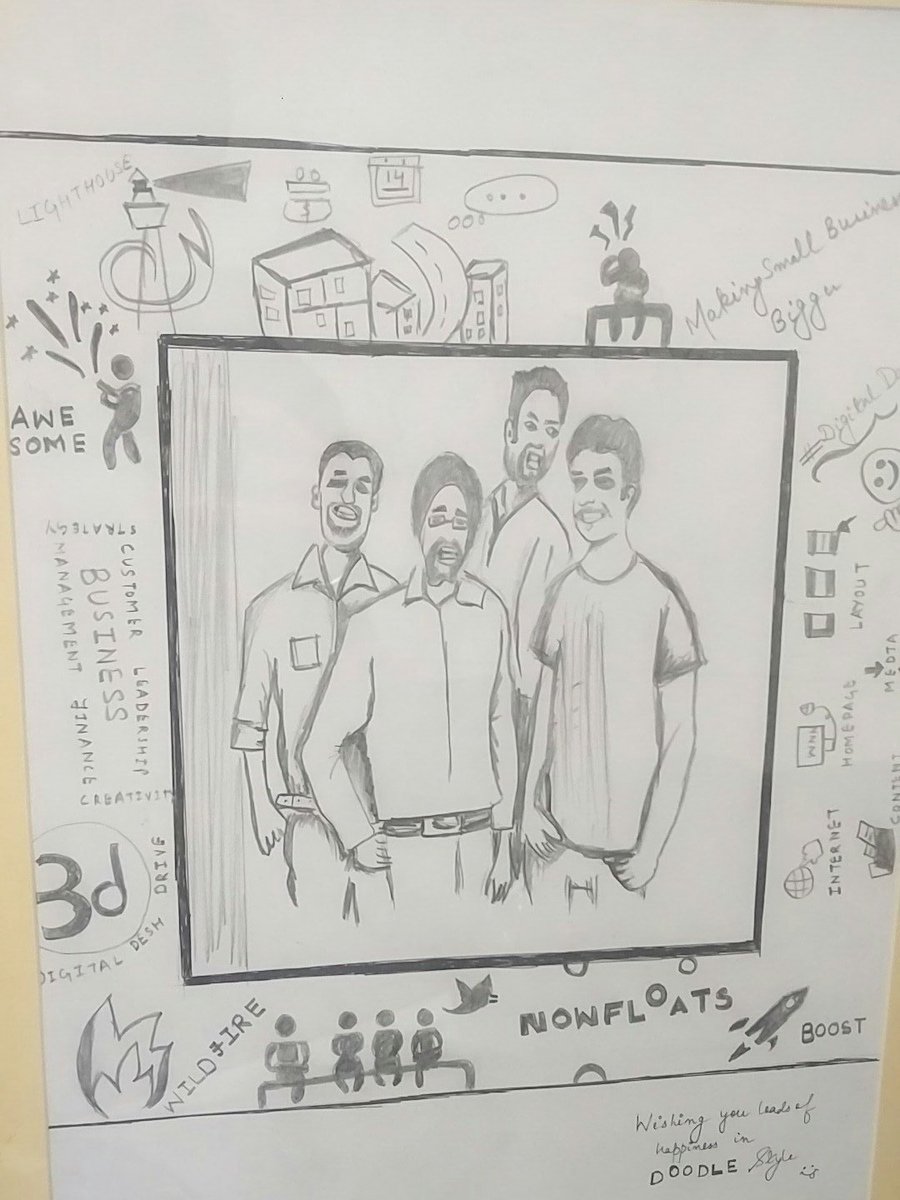 LIGHTHOUSE
14
$
Making Small Business
Bigger
AWE
SOME
#Digital
STRATEGY
CUSTOMER LEADERSHIP
BUSINESS
MANAGEMENT FINANCE
CREATIVITY
LAYOUT
MEDIA
WWW
HOMEPAGE
CONTENT
INTERNET
3d
DIGITAL DESH DRIVE
WILDFIRE
NOWFLOATS
BOOST
Wishing you loads of
happiness in
DOODLE Style